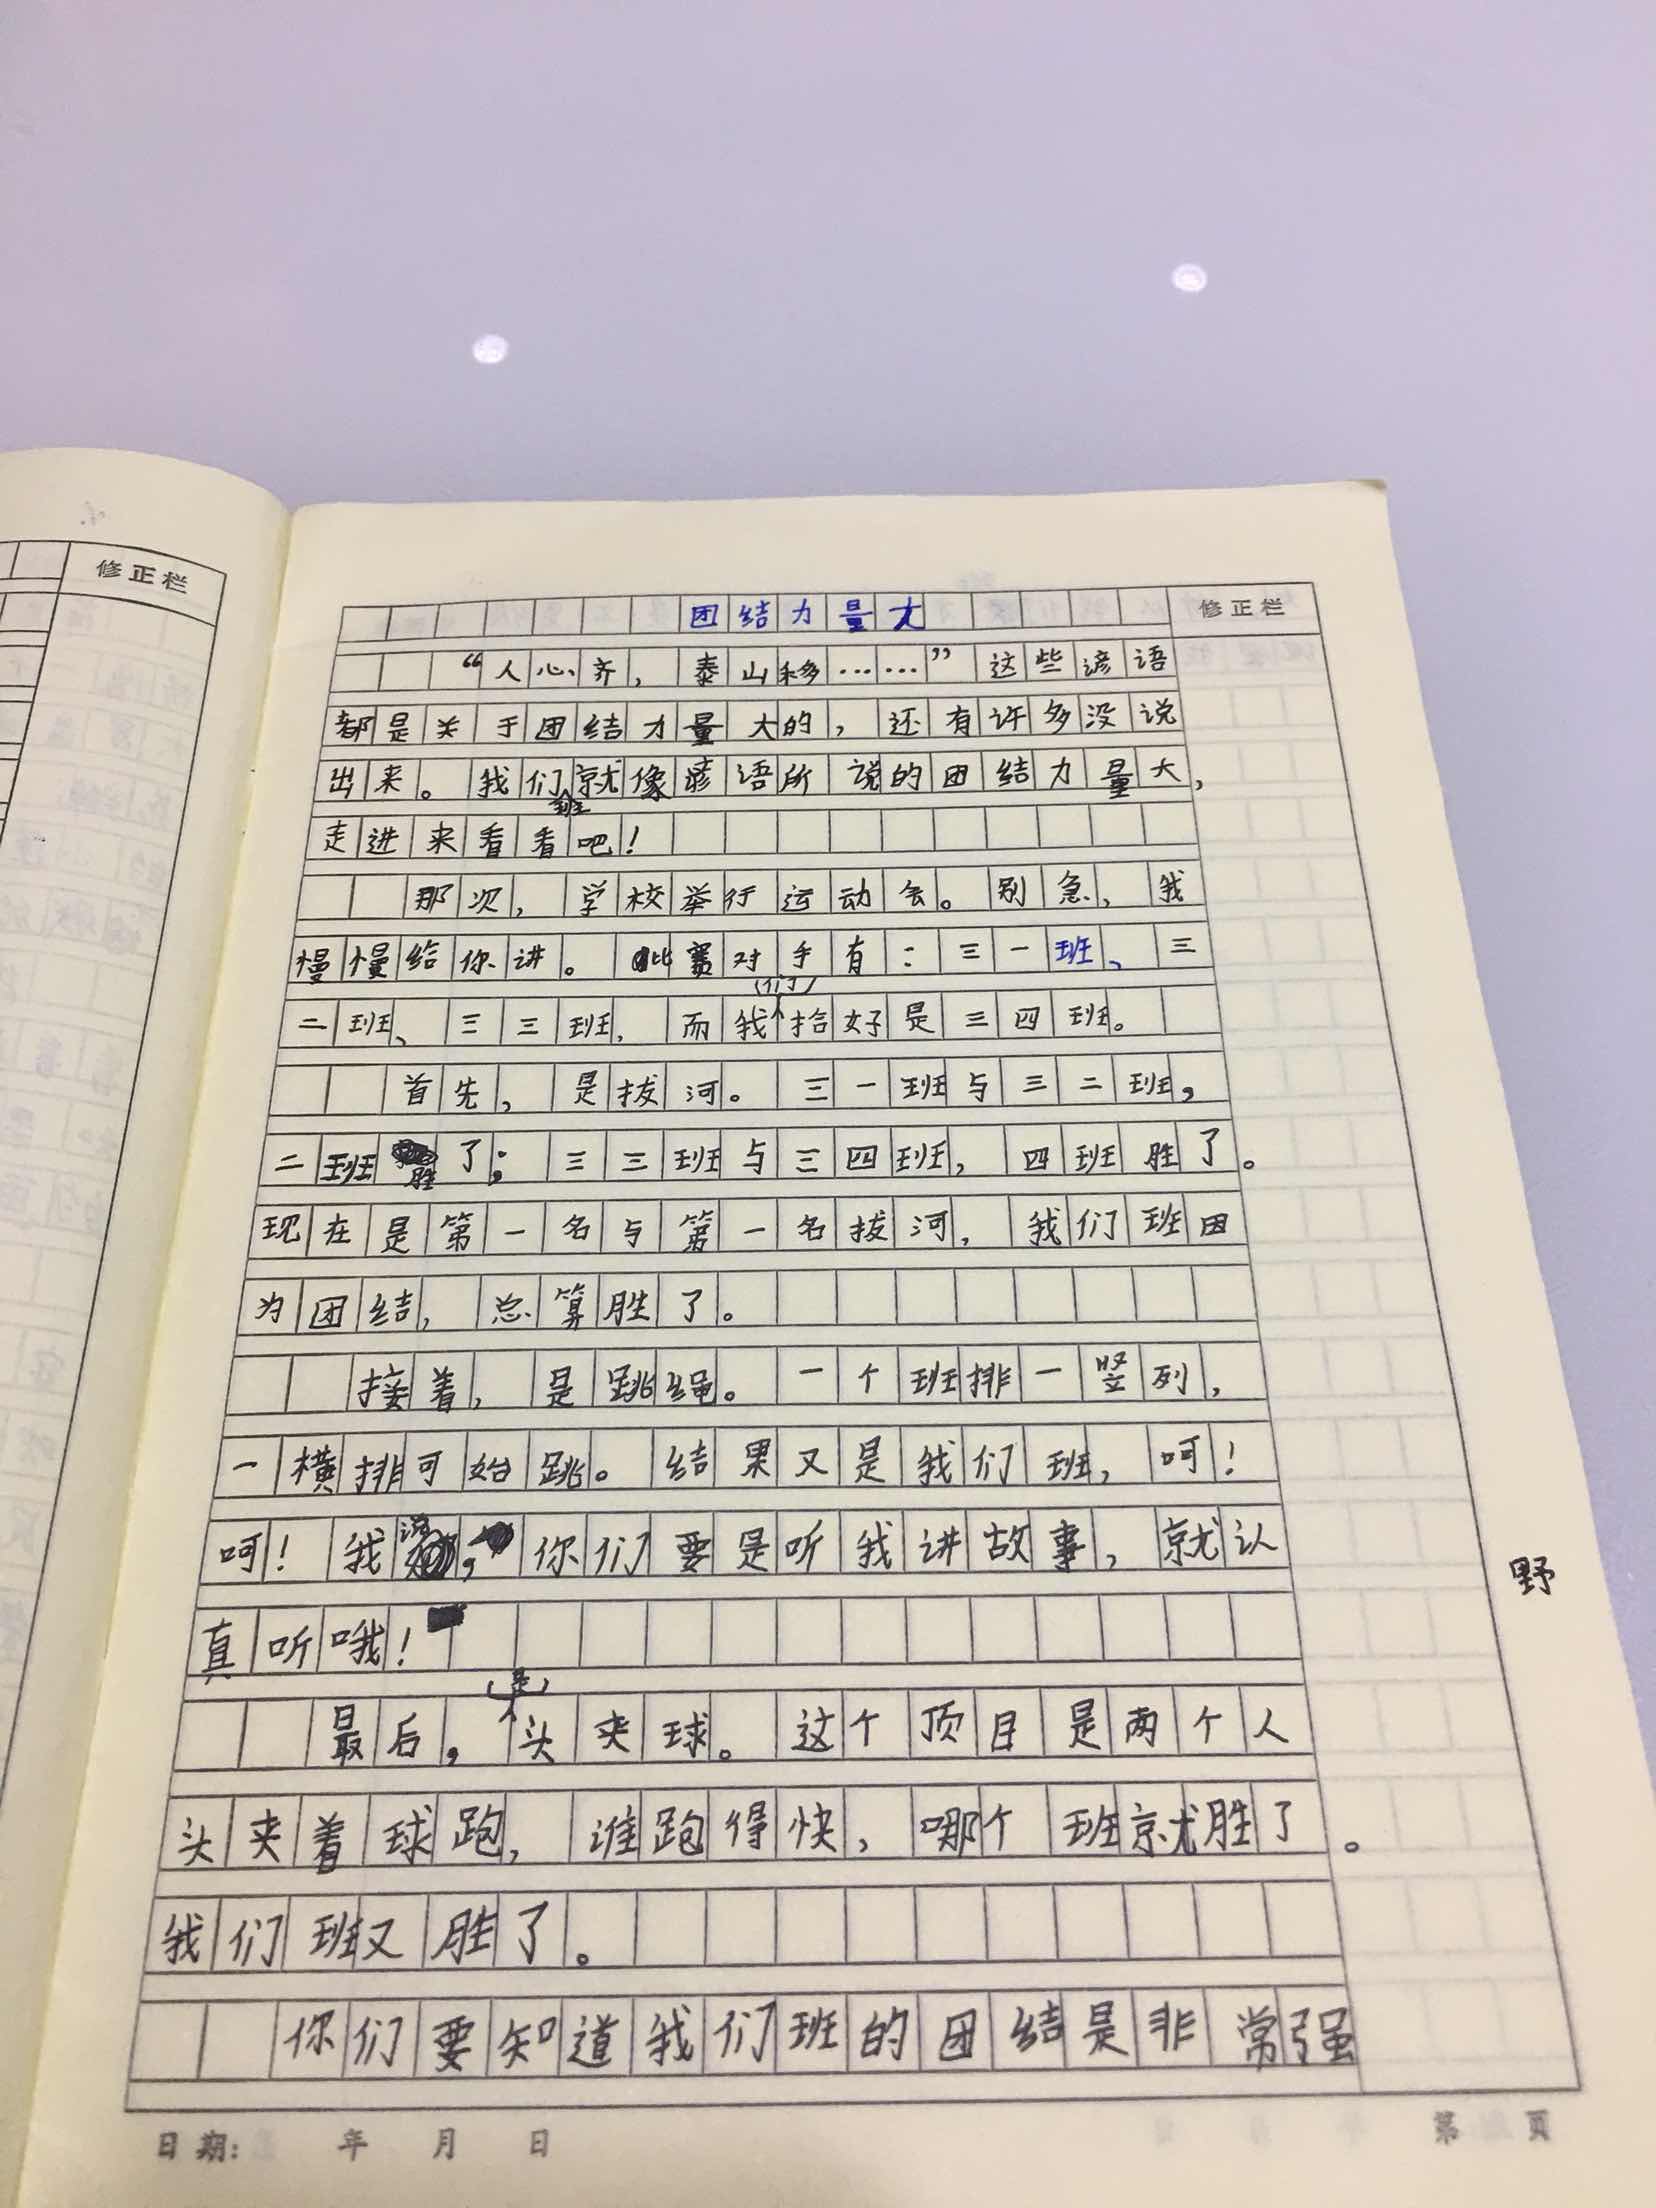 修正栏
团结力量大
修正栏
“人心齐，泰山移……”这些谚语
都是关于团结力量大的，还有许多没说
出来。我们班就像谚语所说的团结力量大，
走进来看看吧！
那次，学校举行运动会。别急，我
慢慢给你讲。比赛对手有：三一班、三
二班、三三班，而我(们)拾好是三四班。
首先，是拔河。三一班与三二班，
二班胜了；三三班与三四班，四班胜了。
现在是第一名与第一名拔河，我们班因
为团结，总算胜了。
接着，是跳绳。一个班排一竖列，
一横排可始跳。结果又是我们班，呵！
呵！我说，你们要是听我讲故事，就认
真听哦！
野
最后，(是)头夹球。这个项目是两个人
头夹着球跑，谁跑得快，哪个班就胜了。
我们班又胜了。
你们要知道我们班的团结是非常强
日期： 年 月 日
第 页